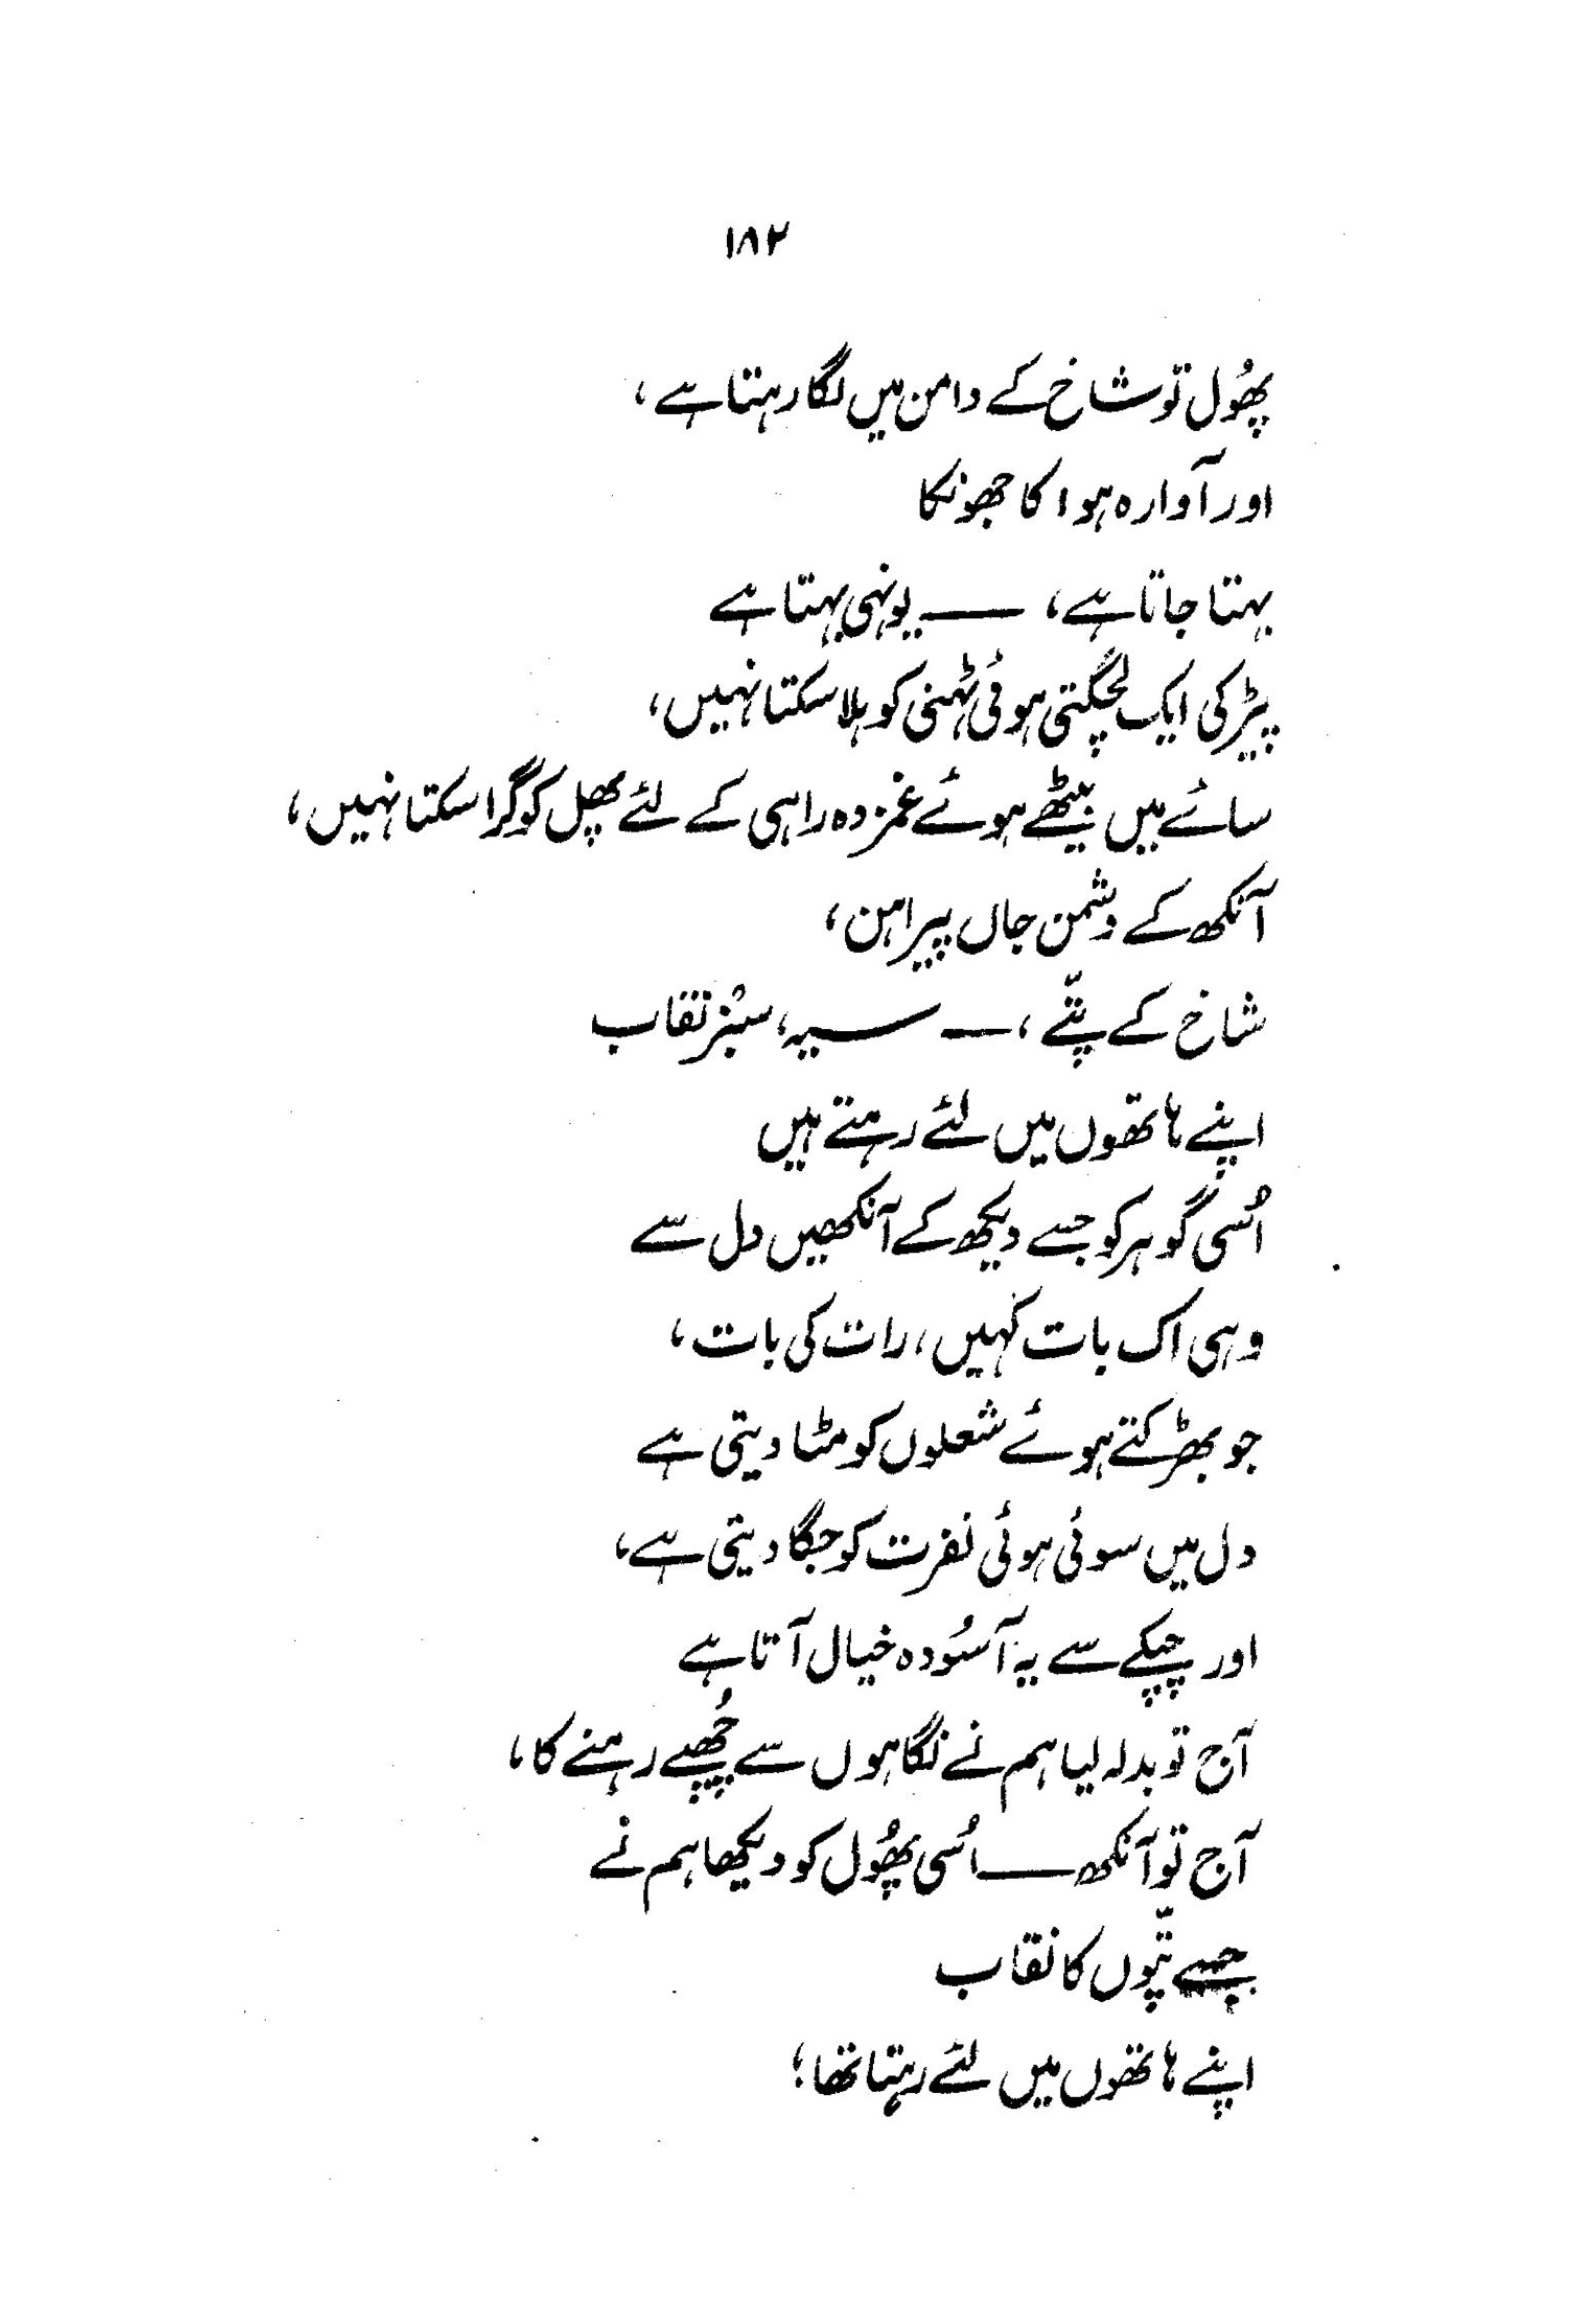 ۱۸۲
پھُول تو شاخ کے دامن میں لگا رہتا ہے،
اور آوارہ ہوا کا جھونکا
بہتا جاتا ہے، — یونہی بہتا ہے
پیڑ کی ایک لچکتی ہوئی ٹہنی کو ہلا سکتا نہیں،
سائے میں بیٹھے ہوئے غمزدہ راہی کے لئے پھل کو گرا سکتا نہیں،
آنکھ کے دشمن جاں پیراہن،
شاخ کے پتّے، — سیہ، سبز نقاب
اپنے ہاتھوں میں لئے رہتے ہیں
اُسی گوہر کو جسے دیکھ کے آنکھیں دل سے
وہی اک بات کہیں، رات کی بات،
جو بھڑکتے ہوئے شعلوں کو مٹا دیتی ہے
دل میں سوئی ہوئی نفرت کو جگا دیتی ہے،
اور چپکے سے یہ آسُودہ خیال آتا ہے
آج تو بدلہ لیا ہم نے نگاہوں سے چھُپے رہنے کا،
آج تو آنکھ — اُسی پھُول کو دیکھا ہم نے
جسے پتّوں کا نقاب
اپنے ہاتھوں میں لئے رہتا تھا؛